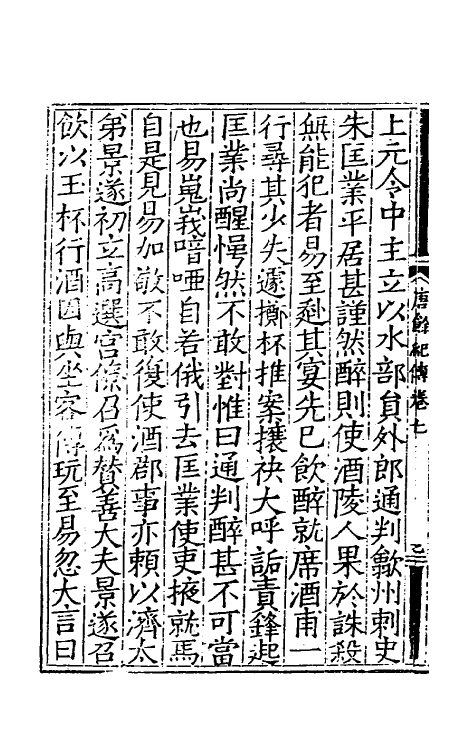 上元令中主立以水部員外郎通判歙州刺史
朱匡業平居甚謹然醉則使酒陵人果於誅殺
無能犯者易至赴其宴先已飲醉就席酒甫一
行尋其少失遽擲杯推案攘袂大呼詬責鋒起
匡業尚醒愕然不敢對惟曰通判醉甚不可當
也易嵬峩喑啞自若俄引去匡業使吏掖就馬
自是見易加敬不敢復使酒郡事亦賴以濟太
弟景遂初立高選宮僚召為贊善大夫景遂召
飲以玉杯行酒因與坐客傳玩至易忽大言曰
唐餘紀傳卷七